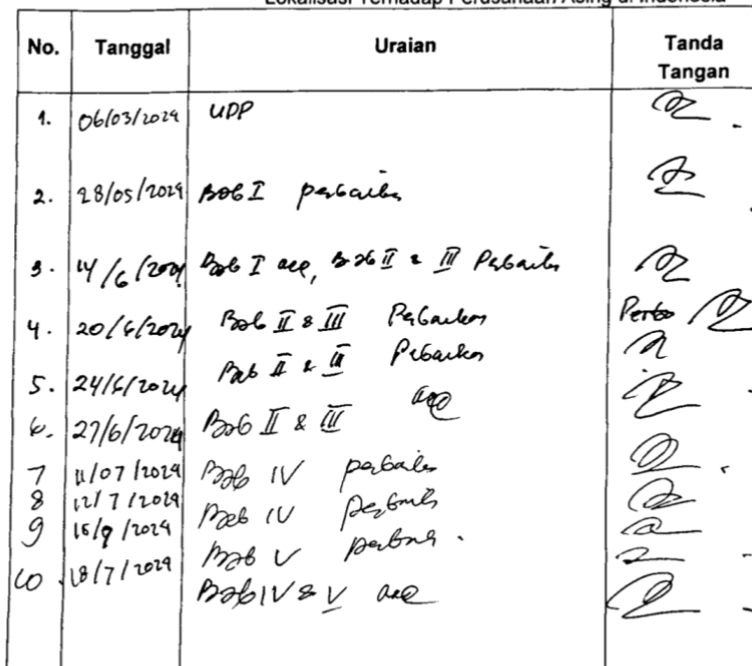 Lokalisasi Terhadap Perusahaan Asing di Indonesia
No. Tanggal Uraian Tanda Tangan
1. 06/03/2024 UDP
2. 28/05/2024 Bab I perbaikan
3. 14/6/2024 Bab I acc, Bab II & III Perbaikan
4. 20/6/2024 Bab II & III Perbaikan
5. 24/6/2024 Bab II & III Perbaikan
6. 27/6/2024 Bab II & III acc
7 11/07/2024 Bab IV perbaikan
8 12/7/2024 Bab IV perbaikan
9 15/9/2024 Bab V perbaikan.
10. 18/7/2024 Bab IV & V acc